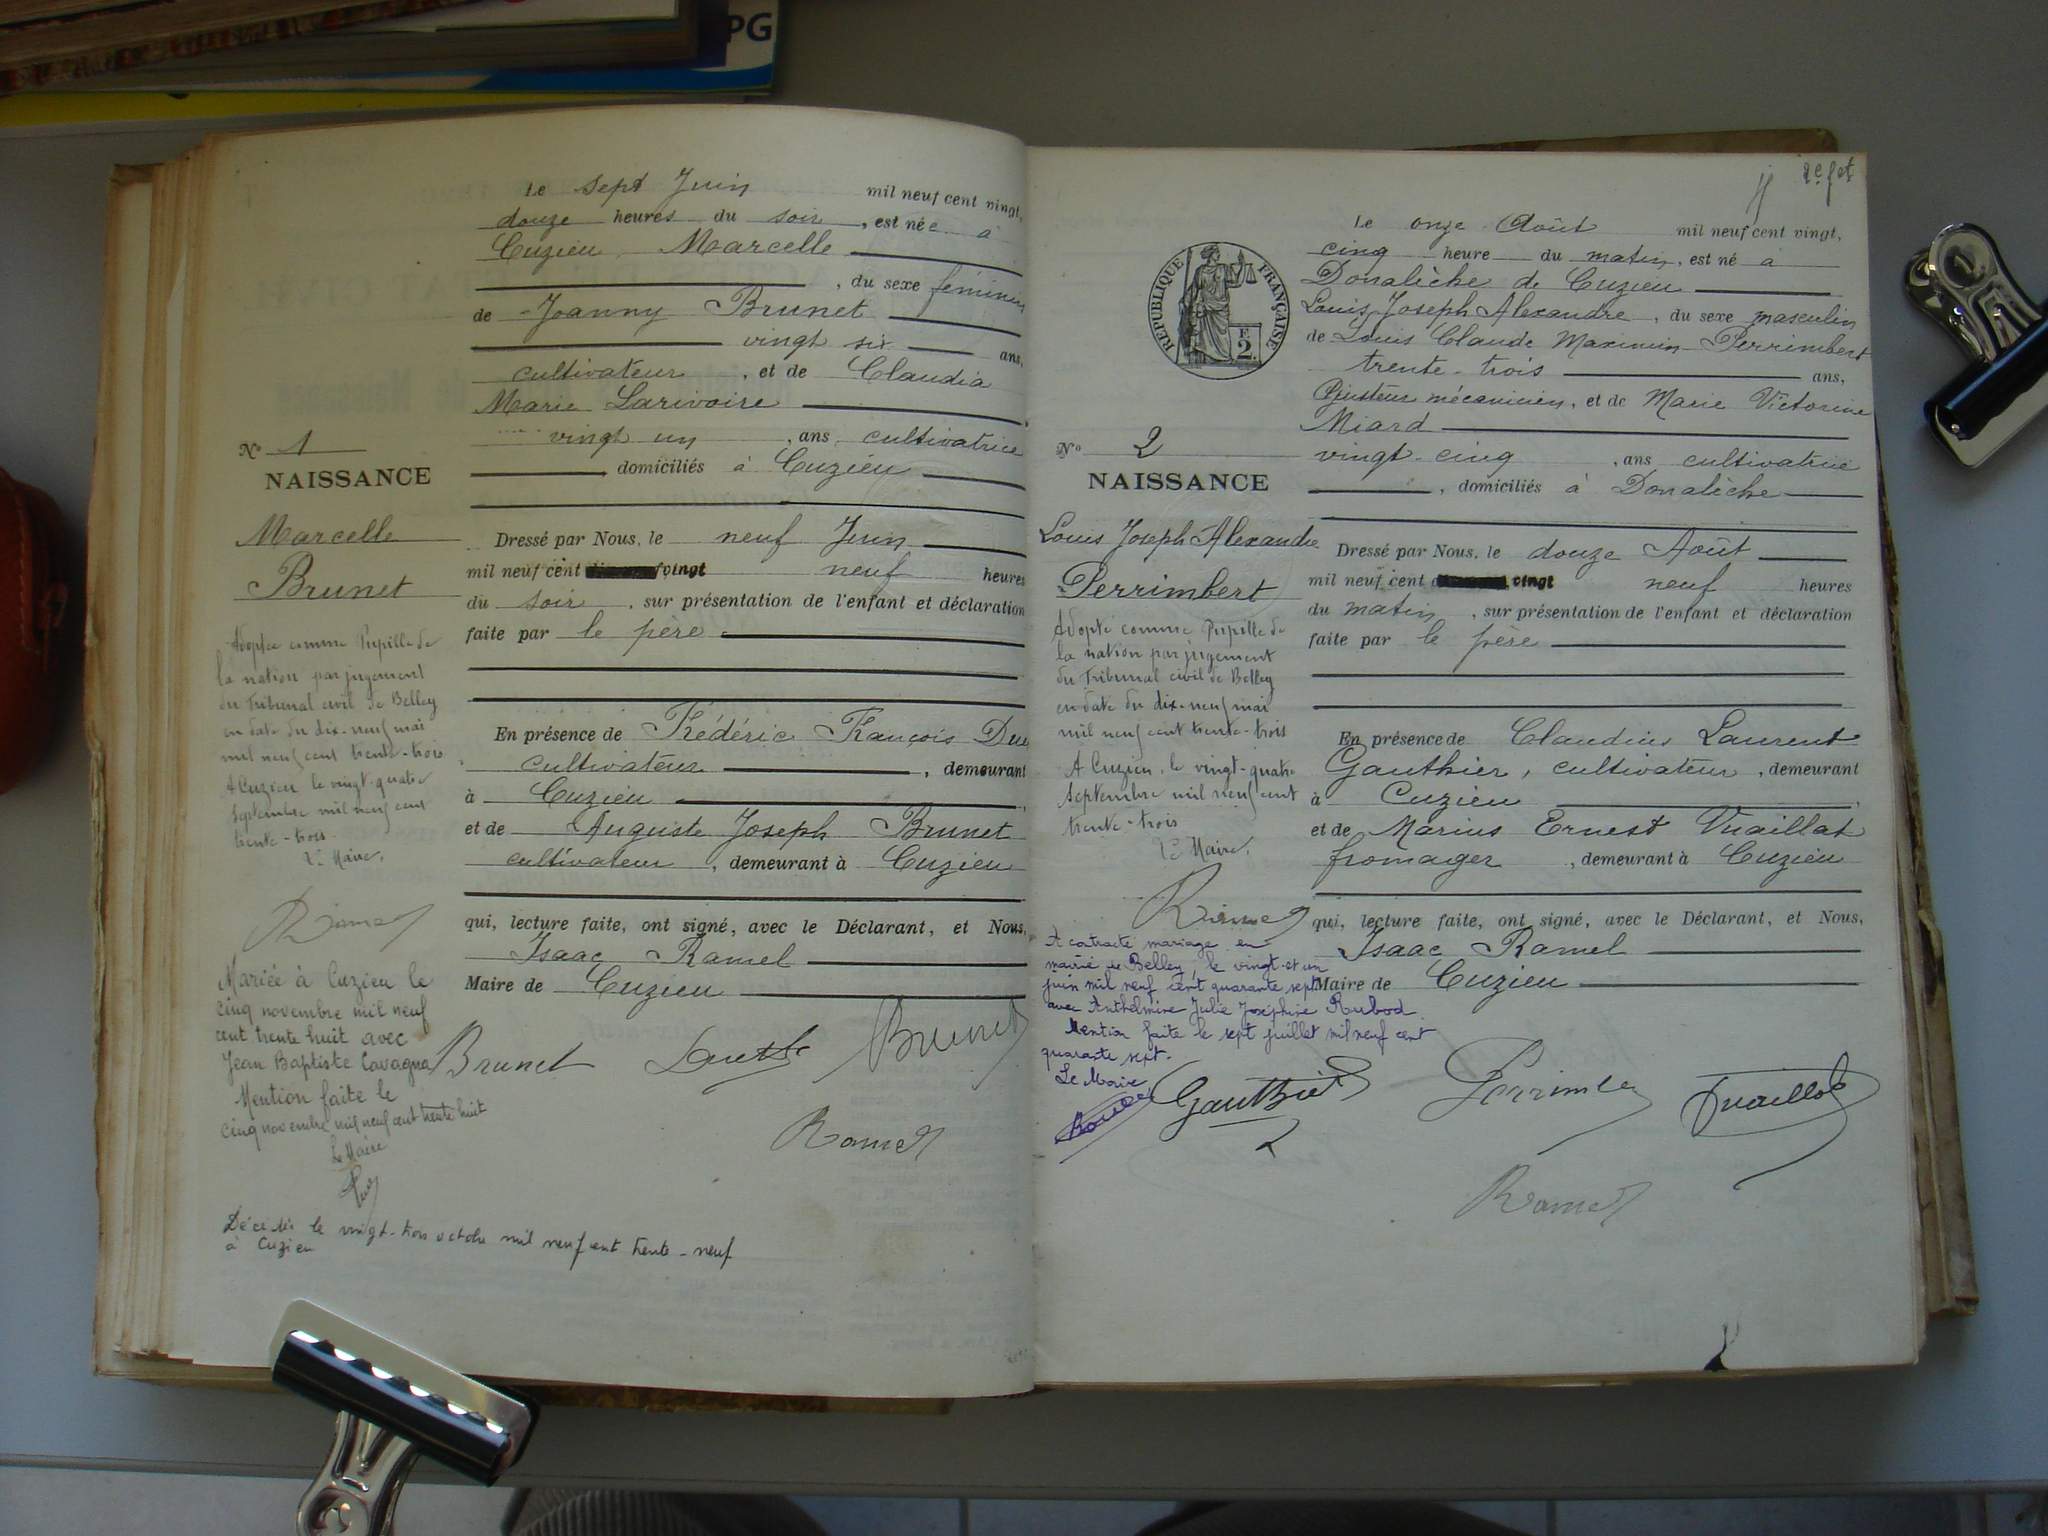 PG
Le sept Juin mil neuf cent vingt,
douze heures du soir, est née à
Cuzieu Marcelle
, du sexe féminin
de Joanny Brunet
vingt six ans,
cultivateur, et de Claudia
Marie Larivoire
vingt un, ans, cultivatrice
domiciliés à Cuzieu
No 1
NAISSANCE
Marcelle
Brunet
Dressé par Nous, le neuf Juin
mil neuf cent vingt neuf heures
du soir, sur présentation de l'enfant et déclaration
faite par le père
En présence de Frédéric François
cultivateur, demeurant
à Cuzieu
et de Auguste Joseph Brunet
cultivateur, demeurant à Cuzieu
qui, lecture faite, ont signé, avec le Déclarant, et Nous,
Isaac Ramel
Maire de Cuzieu
Brunet Brunet
Ramel
Adoptée comme Pupille de
la nation par jugement
du Tribunal civil de Belley
en date du dix-neuf mai
mil neuf cent trente-trois
A Cuzieu le vingt-quatre
septembre mil neuf cent
trente-trois.
Le Maire,
Ramel
Mariée à Cuzieu le
cinq novembre mil neuf
cent trente huit avec
Jean Baptiste Cavagna
Mention faite le
cinq novembre mil neuf cent trente huit
Le Maire
Décédée le vingt-trois octobre mil neuf cent trente-neuf
à Cuzieu
Le onze Août mil neuf cent vingt,
cinq heure du matin, est né à
Donalèche de Cuzieu
Louis Joseph Alexandre, du sexe masculin
de Louis Claude Maximin Perrimbert
trente-trois ans,
Ajusteur mécanicien, et de Marie Victorine
Miard
vingt-cinq, ans cultivatrice
, domiciliés à Donalèche
REPUBLIQUE FRANÇAISE
2
No 2
NAISSANCE
Louis Joseph Alexandre
Perrimbert
Dressé par Nous, le douze Août
mil neuf cent vingt neuf heures
du matin, sur présentation de l'enfant et déclaration
faite par le père
En présence de Claudius Laurent
Gauthier, cultivateur, demeurant
à Cuzieu
et de Marius Ernest Vuaillat
fromager, demeurant à Cuzieu
qui, lecture faite, ont signé, avec le Déclarant, et Nous,
Isaac Ramel
Maire de Cuzieu
Gauthier Perrimber Vuaillat
Ramel
Adopté comme Pupille de
la nation par jugement
du Tribunal civil de Belley
en date du dix-neuf mai
mil neuf cent trente-trois
A Cuzieu, le vingt-quatre
septembre mil neuf cent
trente-trois
Le Maire,
Ramel
A contracté mariage en
mairie de Belley, le vingt et un
juin mil neuf cent quarante sept
avec Anthelmine Julie Joséphine Rubod.
Mention faite le sept juillet mil neuf cent
quarante sept.
Le Maire,